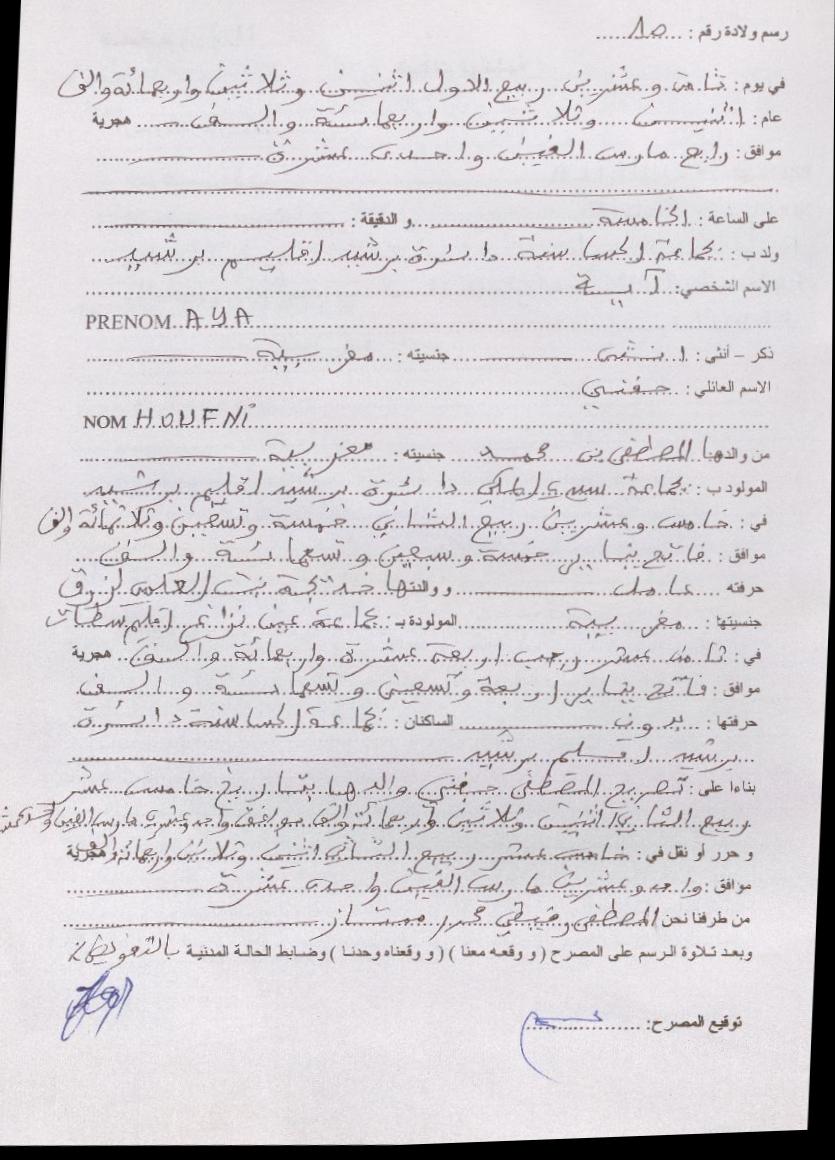 رسم ولادة رقم : ...
في يوم : ثامن وعشرين ربيع الاول اثنين وثلاثين واربعمائة والف
عام : اثنين وثلاثين واربعمائة والف هجرية
موافق : رابع مارس الفين واحدى عشرة
على الساعة : الخامسة و الدقيقة :
ولد ب : بجماعة الحساسنة دائرة برشيد اقليم برشيد
الاسم الشخصي : آية
PRENOM AYA
ذكر – أنثى : انثى جنسيته : مغربية
الاسم العائلي : حفني
NOM HOUFNI
من والدها المصطفى بن محمد جنسيته : مغربية
المولود ب : بجماعة سيدي المكي دائرة برشيد اقليم برشيد
في : خامس وعشرين ربيع الثاني خمسة وتسعين وثلاثمائة والف
موافق : فاتح يناير خمسة وسبعين وتسعمائة والف
حرفته عامل ووالدتها خديجة بنت العلمي لزرق
جنسيتها : مغربية المولودة بـ : بجماعة عين نزاغ اقليم سطات
في : ثامن عشر رجب اربعة عشرة واربعمائة والف هجرية
موافق : فاتح يناير اربعة وتسعين وتسعمائة والف
حرفتها : بدون الساكنان : بجماعة الحساسنة دائرة
برشيد اقليم برشيد
بناءا على : تصريح المصطفى حفني والدها بتاريخ خامس عشر
ربيع الثاني اثنين وثلاثين واربعمائة والف موافق واحد وعشرين مارس الفين
و حرر أو نقل في : خامس عشر ربيع الثاني اثنين وثلاثين واربعمائة والف هجرية
موافق : واحد وعشرين مارس الفين واحدى عشرة
من طرفنا نحن المصطفى رفيقي محرر ممتاز
وبعد تلاوة الرسم على المصرح ( و وقعه معنا ) ( و وقعناه وحدنا ) وضابط الحالة المدنية بالتفويض
توقيع المصرح :